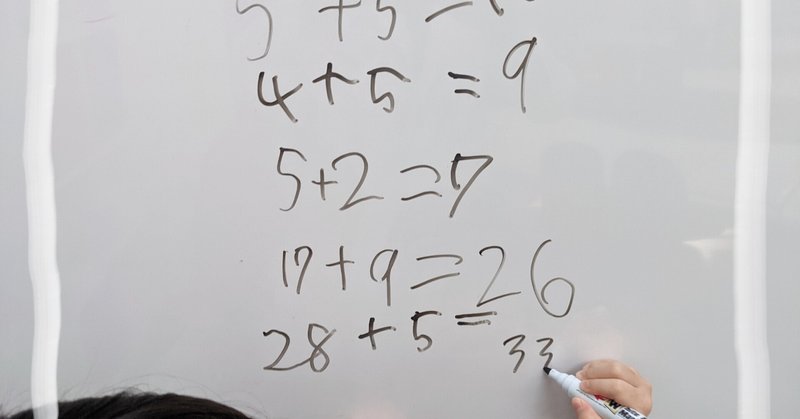 5+5=
4+5=9
5+2=7
17+9=26
28+5=33